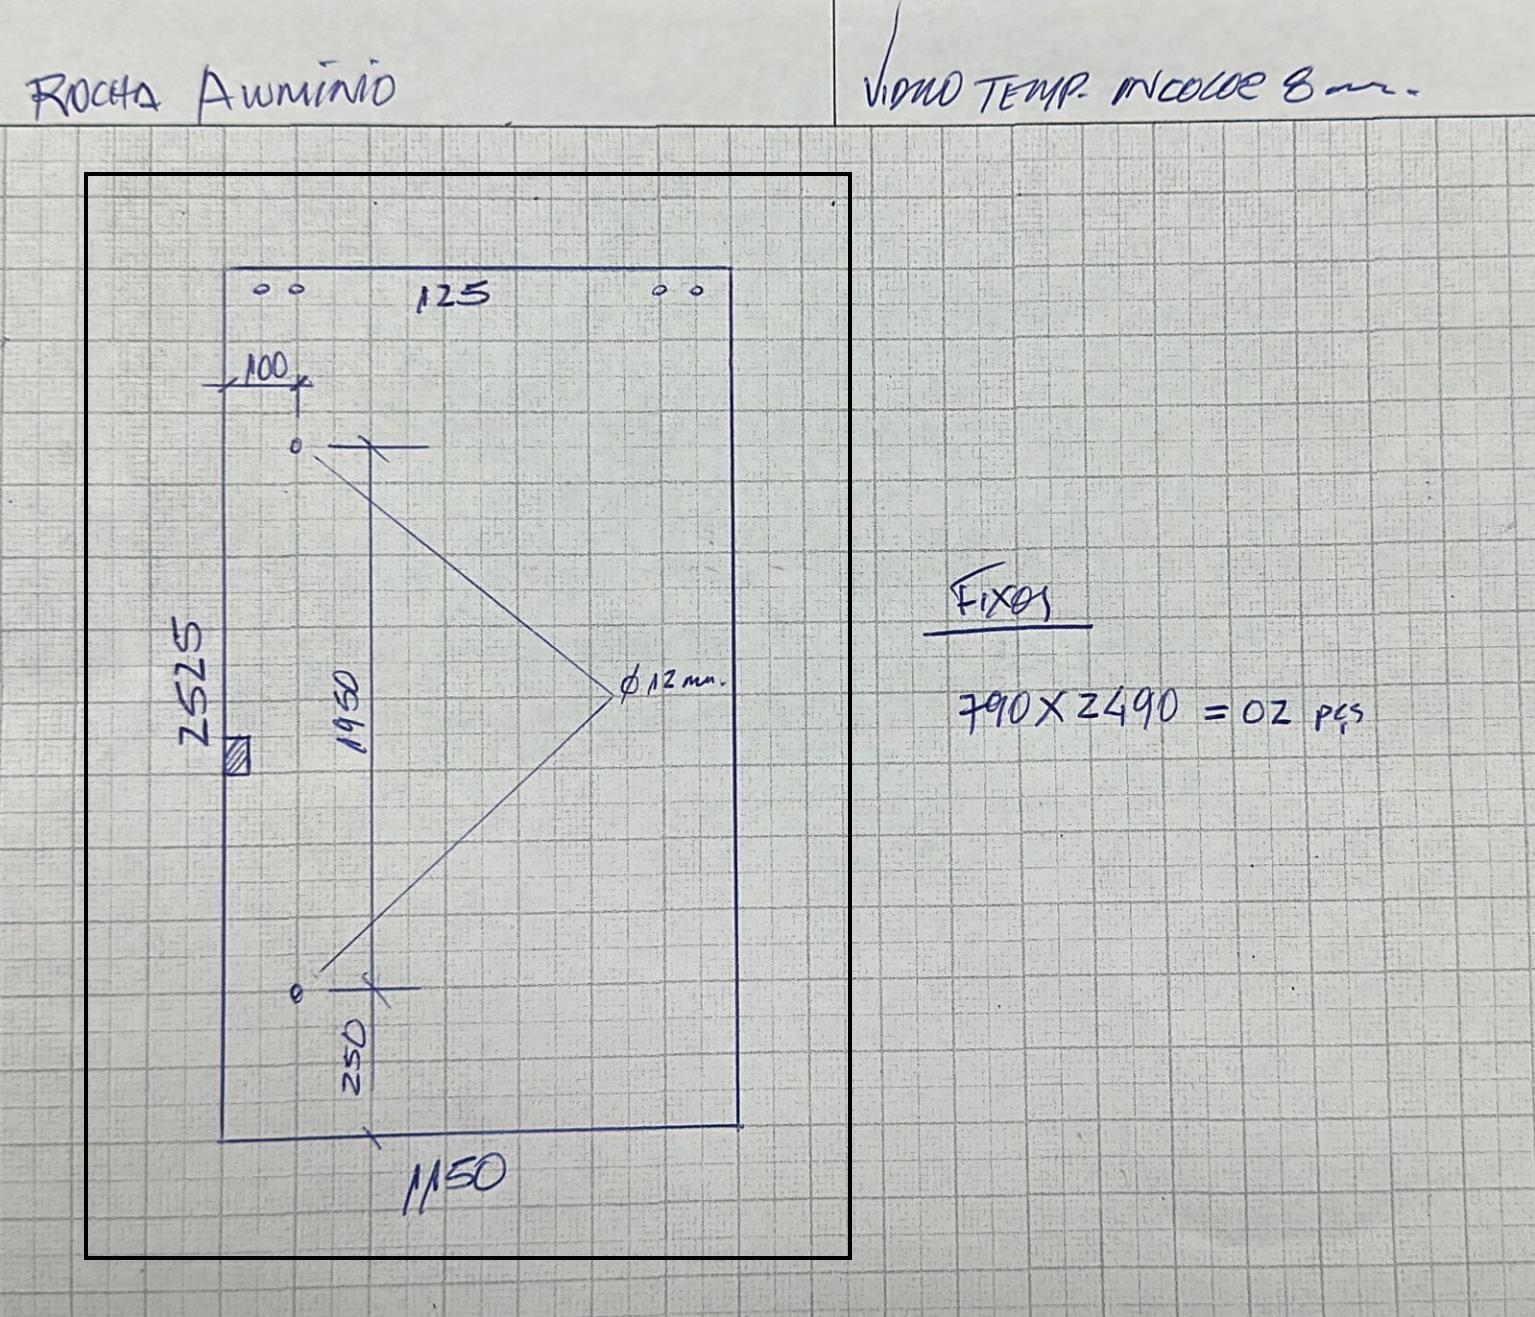 ROCHA ALUMÍNIO
VIDRO TEMP. INCOLOR 8mm.
125
100
2525
1950
Ø 12 mm.
250
1150
Fixos
790 X 2490 = 02 pçs